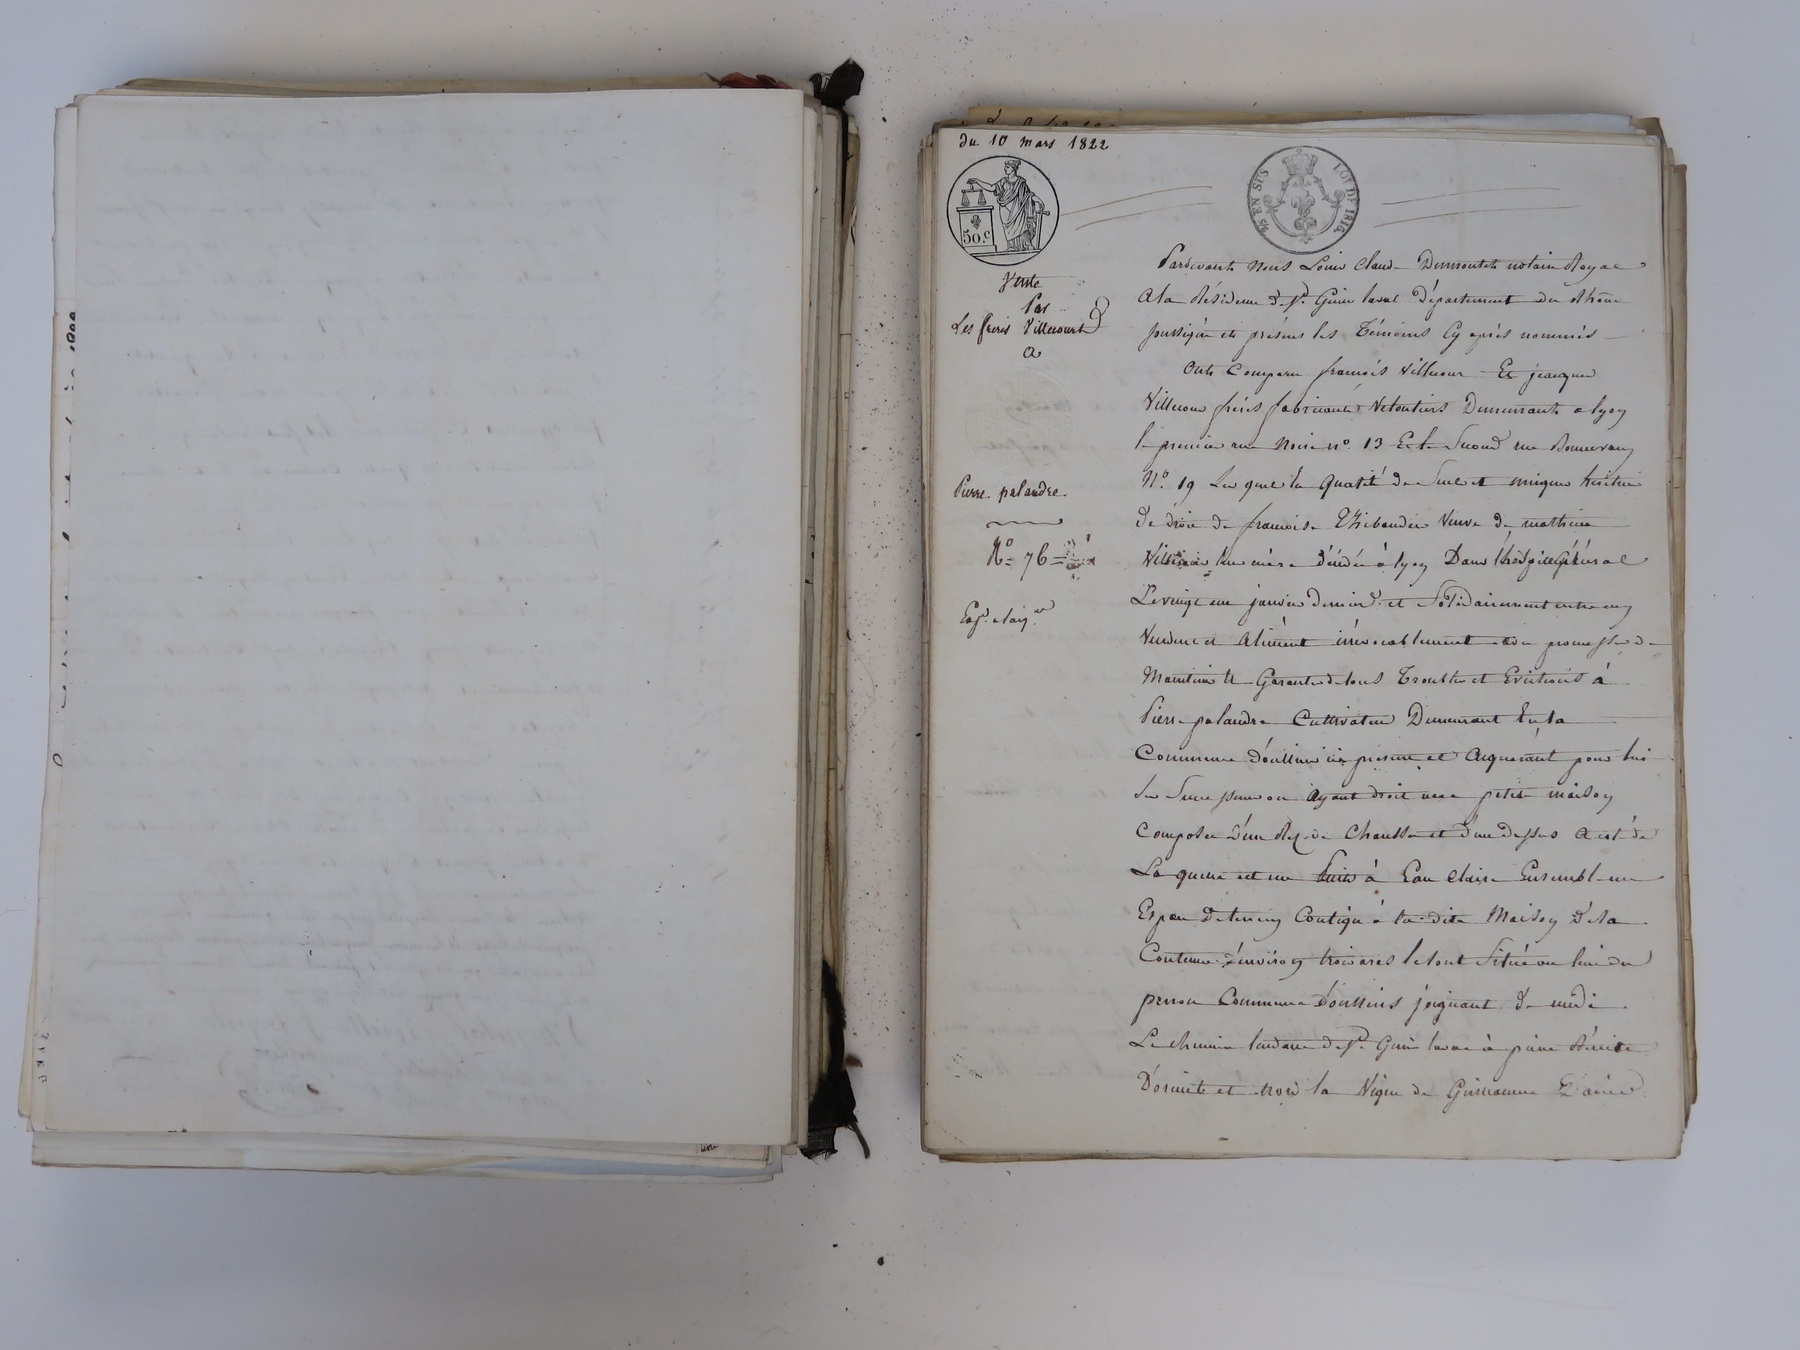 du 10 mars 1822
50 c
EN SUS
LOI DE 1816
Vente
Par
Les freres Villecourt
a
Pierre palandre.
No 76
Pardevant Nous Louis Claude Dumontet notaire Royal
A la Résidence de St. Genis laval Département du Rhône
soussigné et présens les Témoins Cy après nommés
Ont Comparu françois Villecour Et jacques
Villecour frères fabricants Veloutiers Demeurants a lyon
le premier rue Noire no. 13 Et le Second rue Bonneveau
No. 19 Les quels en Qualité de Seuls et uniques héritiers
de droit de françoise Thibaudier Veuve de mathieu
Villecour leur mère décédée à lyon Dans l'hospice Général
Le vingt un janvier dernier et Solidairement entre eux
Vendent et Aliènent irrévocablement avec promesse de
Maintenir et Garantir de tous Troubles et Evictions à
Pierre palandre Cultivateur Demeurant En la
Commune d'oullins ici présent et Acquérant pour lui
les Siens ou Ayant droit une petite maison
Composée d'un Rez de Chaussée et d'un dessus a coté de
La quelle est un Puits à Eau Claire Ensemble un
Espace de terrein Contigu à la dite Maison De la
Contenue d'environ trois ares le tout Situé au lieu du
perron Commune d'oullins joignant de midi
Le chemin tendant de St. Genis laval à pierre Bénite
D'orient et nord la Vigne de Guillaume